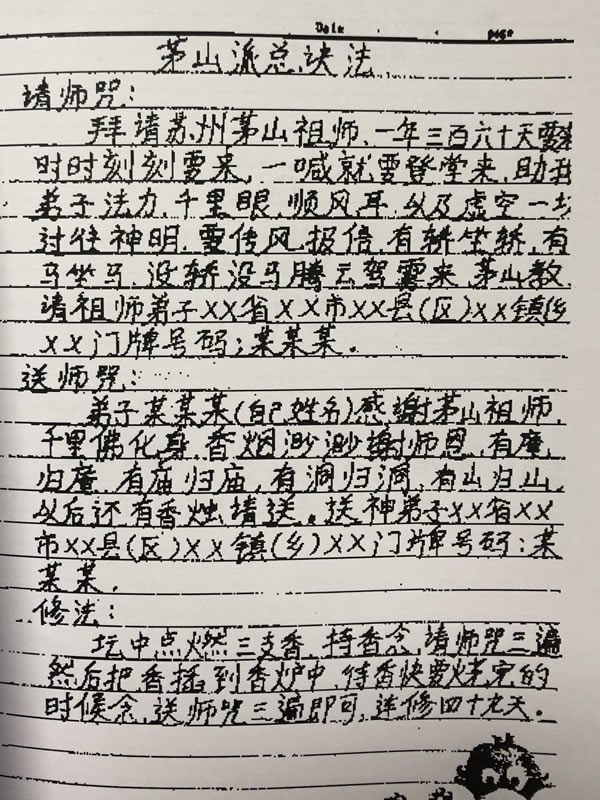 Date
page
茅山派总诀法
请师咒：
拜请苏州茅山祖师、一年三百六十天要
时时刻刻要来，一喊就要登堂来，助我
弟子法力，千里眼，顺风耳，以及虚空一切
过往神明，要传风报信，有轿坐轿，有
马坐马，没轿没马腾云驾雾来，茅山教
请祖师弟子XX省XX市XX县(区)XX镇(乡
XX门牌号码；某某某。
送师咒：
弟子某某某(自己姓名)感谢茅山祖师，
千里佛化身，香烟渺渺谢师恩，有庵
归庵，有庙归庙，有洞归洞，有山归山，
以后还有香烛请送。送神弟子XX省XX
市XX县(区)XX镇(乡)XX门牌号码：某
某某，
修法：
坛中点燃三支香，持香念，请师咒三遍
然后把香插到香炉中，待香快要烧完的
时候念，送师咒三遍即可，连修四十九天。